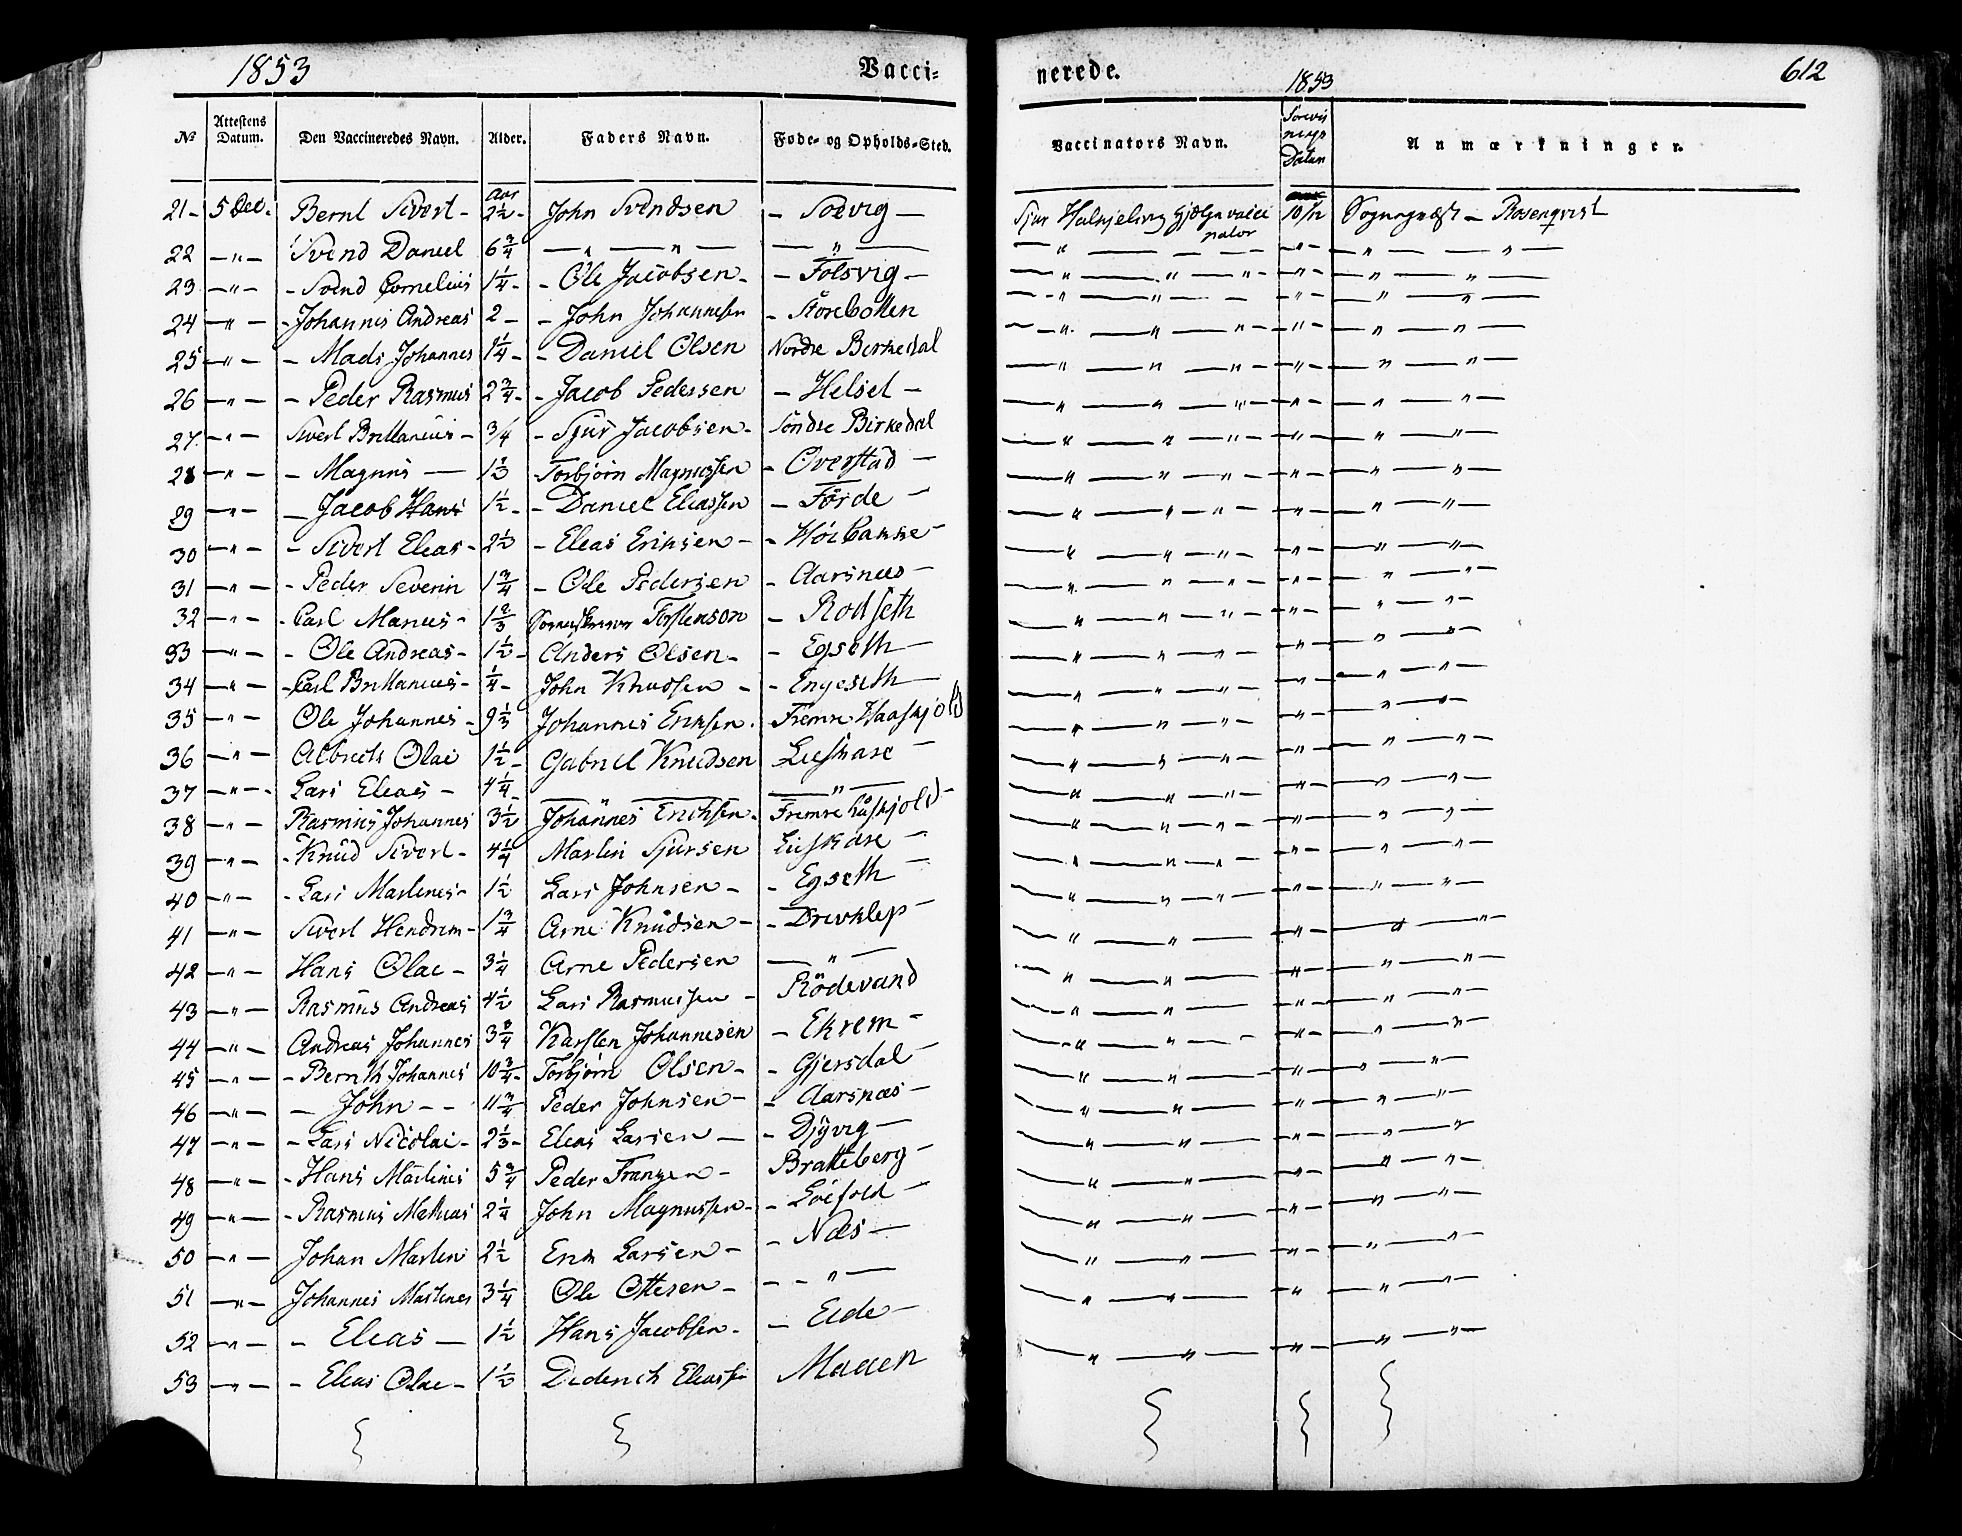 1853
Vacci-
nerede.
1853
612
No
Attestens Datum.
Den Vaccineredes Navn.
Alder.
Faders Navn.
Føde- og Opholds-Sted.
Vaccinators Navn.
Datum
Anmærkninger.
Aar
21 - 5 Dec. Bernt Sivert - 2 1/2 - John Svendsen - Solvig - Sjur Hjelpevacci 10/12 Rosenqvist
nator
22 - " - Svend Daniel 6 3/4 - " - " - - " -
23 - " - - Svend Cornelius 1 1/4 - - Ole Jacobsen - - Folsvig -
24 - " - - Johannes Andreas 2 - - John Johannesen - Storebotten
25 - " - - Mads Johannes 1 1/4 - - Daniel Olsen Nordre Birkedal
26 - " - - Peder Rasmus 2 3/4 - - Jacob Pedersen - Helset -
27 - " - Sivert Brittanius - 3/4 - Sjur Jacobsen - Söndre Birkedal
28 - " - - Magnus - 1 1/2 Torbjörn Magnussen - Overstad -
29 - " - - Jacob Hans 1 1/2 - - Daniel Eliassen - Förde -
30 - " - - Sivert Elias - 2 1/2 - Elias Eriksen - - Höibakke -
31 - " - - Peder Severin 1 3/4 - Ole Pedersen - Aarsnæs -
32 - " - - Carl Manus - 1 2/3 Torstenson - Rodseth
33 - " - - Ole Andreas - 1 1/2 - Anders Olsen - - Egseth -
34 - " - - Carl Brittanius - 1/4 - John Knudsen - - Engeseth -
35 - " - Ole Johannes - 9 1/2 Johannes Eriksen. Fremre Haaskjold
36 - " - Albrect Olai 1 1/2 - Gabriel Knudsen Lieskare -
37 - " - Lars Elias - 4 1/4 - - " -
38 - " - Rasmus Johannes 3 1/2 Johannes Erichsen. Fremre Håskjold -
39 - " - - Knud Sivert - 4 1/4 Martin Sjursen Lieskare -
40 - " - - Lars Martines - 1 1/2 Lars Johnsen - - Egseth -
41 - " - Sivert Hendrim - 1 3/4 Arne Knudsen - - Drivklep -
42 - " - Hans Olai - 3 1/4 Arne Pedersen - " -
43 - " - Rasmus Andreas 4 1/2 Lars Rasmussen - Rödevand
44 - " - Andreas Johannes 3 3/4 Karsten Johannesen - Ekrem -
45 - " - - Bernth Johannes 10 3/4 - Torbjörn Olsen - - Gjersdal -
46 - " - - John - - 11 3/4 Peder Johnsen - - Aarsnæs -
47 - " - - Lars Nicolai - 2 1/3 - Elias Larsen - - Djyvig -
48 - " - - Hans Martines 5 3/4 Peder Franzen - Bratteberg -
49 - " - - Rasmus Mathias 2 1/4 John Magnussen - - Löefold -
50 - " - Johan Martin 2 1/2 Erik Larsen - - Næs -
51 - " - Johannes Martines 3 1/4 Ole Ottesen - - - " -
52 - " - - Elias - 1 1/2 Hans Jacobsen - - Eide -
53 - " - - Elias Olai - 1 1/2 Diderich Eliassen